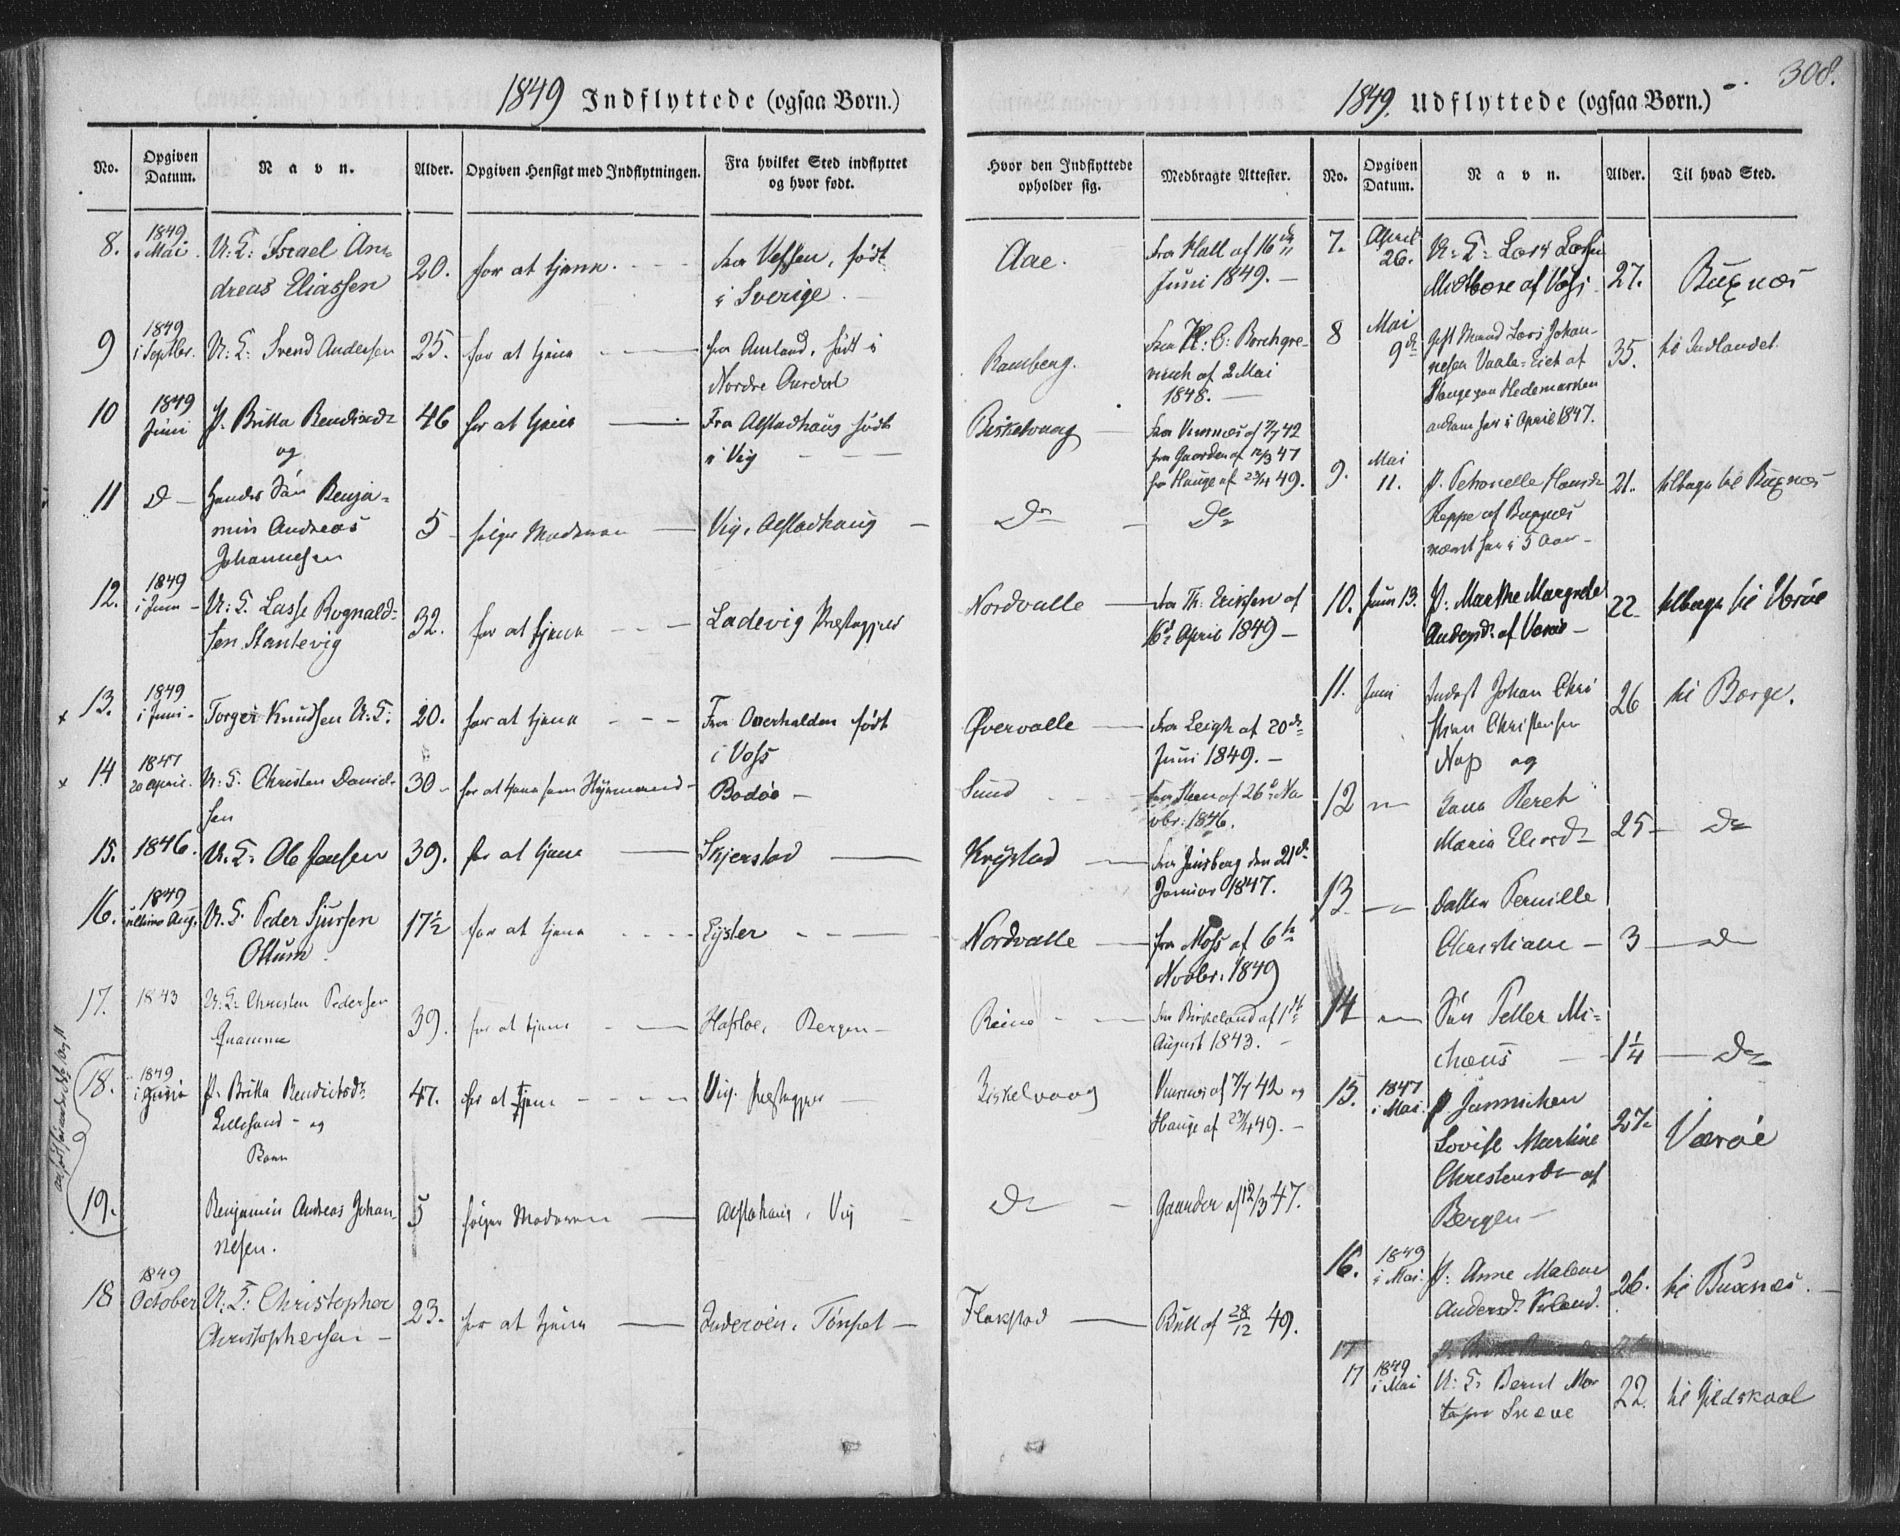 308.
1849 Indflyttede (ogsaa Børn.)
No. Opgiven Datum. Navn. Alder. Opgiven Hensigt med Indflytningen. Fra hvilket Sted indflyttet og hvor født. Hvor den Indflyttede opholder sig. Medbragte Attester.
8. 1849 i Mai U: K: Israel An- 20. for at tjene. Fra Vefsen, født Aae. Fra Hall af 16de
dreas Eliassen i Sverige Juni 1849.
9 1849 i Septbr. U: K: Svend Andersen 25. for at tjene fra Aurland, født i Ramberg. Fra H: C: Borchgre-
Nordre Aurdal vinck af 2 Mai
1848.
10 1849 Juni P. Britta Bendixdr 46 for at tjene Fra Alstadhaug født Birkelvaag
og i Vig fra af 7/7 42
fra af 12/3 47
fra Hauge af 23/4 49.
11 Do Hendes Søn Benja- 5 følger Moderen Vig, Alstadhaug Do Do
min Andreas
Johannesen
12. 1849 i Juni U: K. Lasse Rognald- 32. for at tjene Ladevig Præstegjeld Nordvalle fra Th: Eriksen af
sen Stantevig 16de April 1849
x 13. 1849 i Juni Torger Knudsen U: K: 20. for at tjene Fra Overhalden født Øvervalle Fra Leigh af 20de
i Voss Juni 1849.
x 14 1847 20 April. U: K. Christen David- 30 for at tjene som Hyremand Bodøe Sund fra Steen af 26de No-
sen vbr: 1846.
15. 1846. U. K: Ole Jensen 39. for at tjene Skjerstad Krystad fra Junsberg den 21de
Januar 1847.
16. 1849 ultimo Aug. U: K. Peder Sjursen 17½ for at tjene Lyster Nordvalle fra Moss af 6te
Ottum. Novbr. 1849
17. 1843 U: K: Christen Pedersen 39. for at tjene Hafsloe, Bergen Reine fra Birkeland af 1ste
Qvamme August 1843.
18. 1849 i Juni P. Britta Bendictsdr 47. for at tjene Vig. Præstegjeld Birkelvaag af 7/7 42 og
Lillesund og Hauge af 23/4 49.
Barn
19. Benjamin Andreas Johan- 5 følger Moderen Alstahaug, Vig Do af 12/3 47.
nesen.
18 1849 October U: K: Christopher 23. for at tjene Inderøen, Tønset Flakstad Bull af 28/12 49.
Christophersen
1849. Udflyttede (ogsaa Børn.)
No. Opgiven Datum. Navn. Alder. Til hvad Sted.
7. April 26. U: K: Lars Larsen 27. Buxnæs
Midtbøe af Voss
8 Mai 9de Gift Mand Lars Johan- 35. til Indlandet
nesen Vaala-Eiet af
Stange paa Hedemarken
ankom her i April 1847.
9. Mai 11. P. Petronelle Hansdr 21. tilbage til Buxnæs
Reppe af Buxnæs
været her i 5 Aar
10. Juni 13. P: Marthe Margrete 22 tilbage til Værøe
Andersdr af Værøe
11. Juni Inderst Johan Chri 26 til Borge.
stian Christensen
Nap og
12 Kona Beret 25 Do
Maria Eliasdr
13 Datter Pernille
Christiane 3 Do
14 Søn Peller Mi-
chæus 1¼ Do
15. 1847 i Mai. P Jannichen 27 Værøe
Lovise Martine
Christensdr af
Bergen
16. 1849 i Mai. P: Anne Malene 26. til Buxnæs.
Andersdr
17
17 1849 i Mai U: K: Bernt Mor 22. til Gildskaal